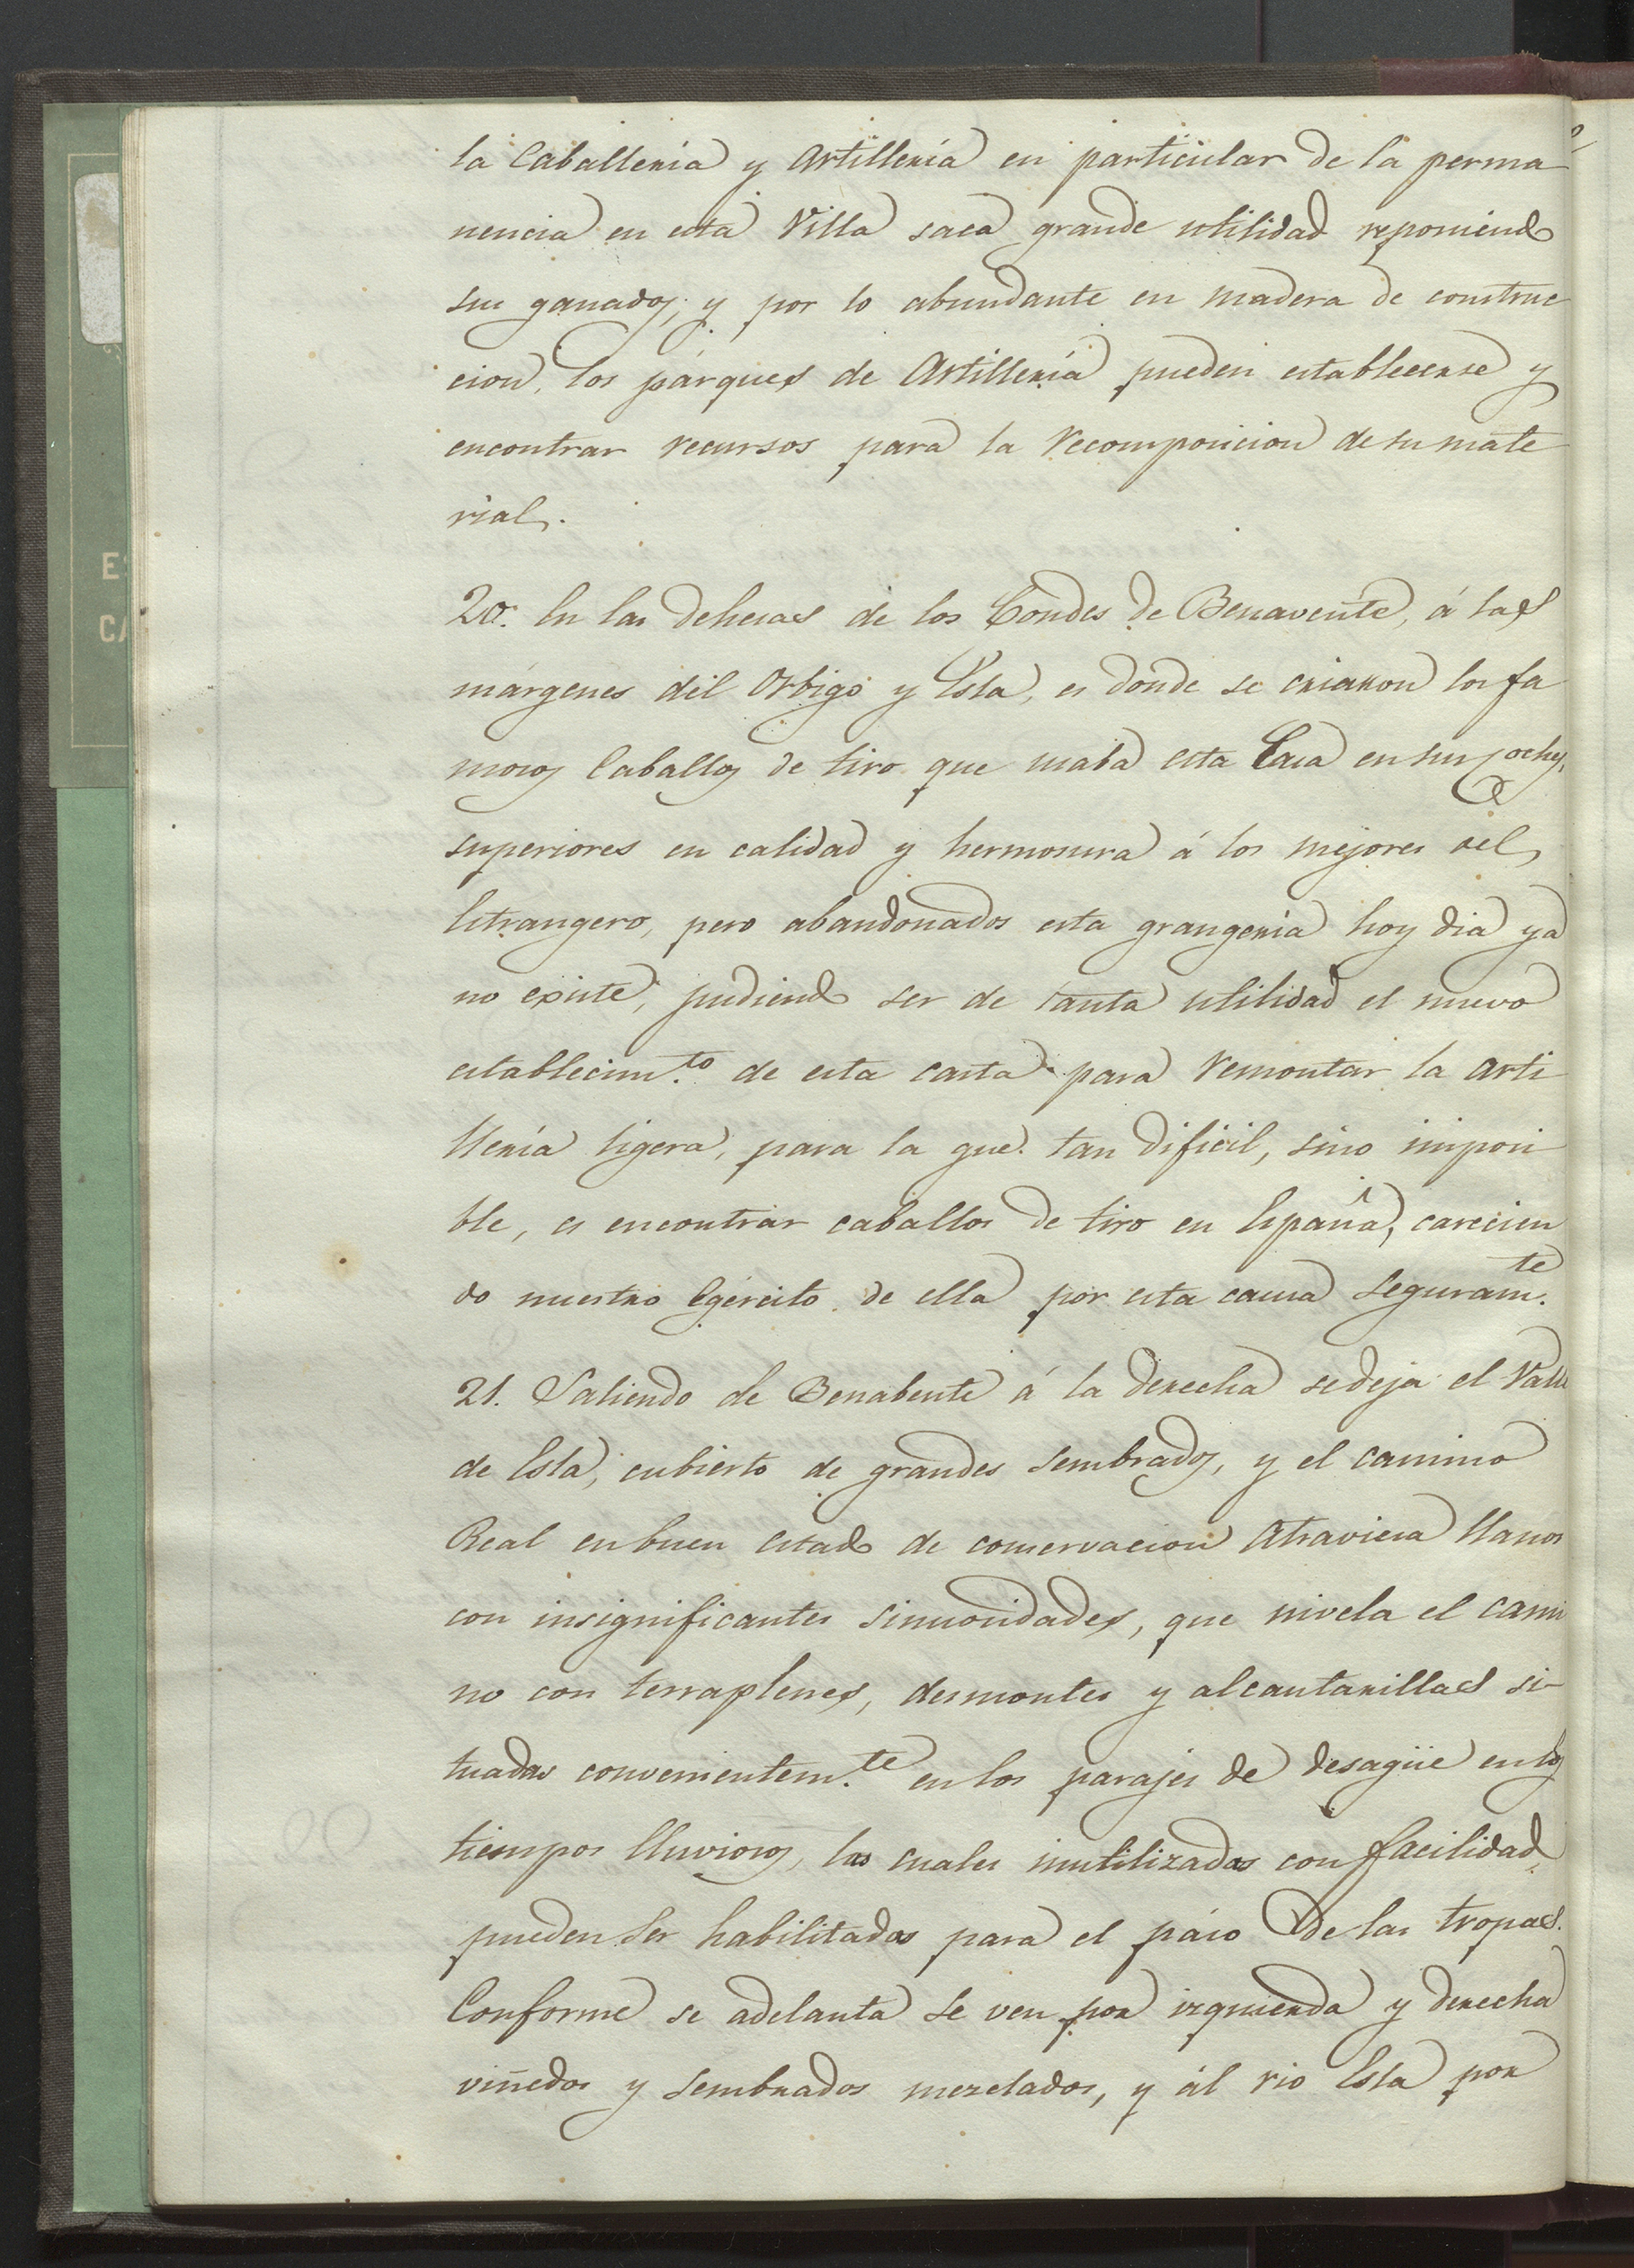 la Caballería y Artillería en particular de la perma
nencia en esta Villa saca grande utilidad reponiendo
sus ganados; y por lo abundante en madera de construc
cion, los párques de Artillería pueden establecerse y
encontrar recursos para la recomposicion de su mate
rial.
20. En las dehesas de los Condes de Benavente, á las
márgenes del Orbigo y Esla, es donde se criaron los fa
mosos Caballos de tiro que usaba esta Casa en sus coches,
superiores en calidad y hermosura á los mejores del
Estrangero, pero abandonados esta grangería hoy dia ya
no existe, pudiendo ser de tanta utilidad el nuevo
establecim.to de esta casta para remontar la Arti
llería ligera, para la que tan dificil, sino imposi
ble, es encontrar caballos de tiro en España, carecien
do nuestro Egército de ella por esta causa seguram.te
21. Saliendo de Benabente á la derecha se deja el Valle
de Esla, cubierto de grandes sembrados, y el camino
Real en buen estado de conservacion atraviesa llanos
con insignificantes sinuosidades, que nivela el cami
no con terraplenes, desmontes y alcantarillas si-
tuadas convenientem.te en los parajes de desagüe en los
tiempos lluviosos, las cuales inutilizadas con facilidad,
pueden ser habilitadas para el páso de las tropas.
Conforme se adelanta se ven por izquierda y derecha
viñedos y sembrados mezclados, y ál rio Esla por
ES
CA